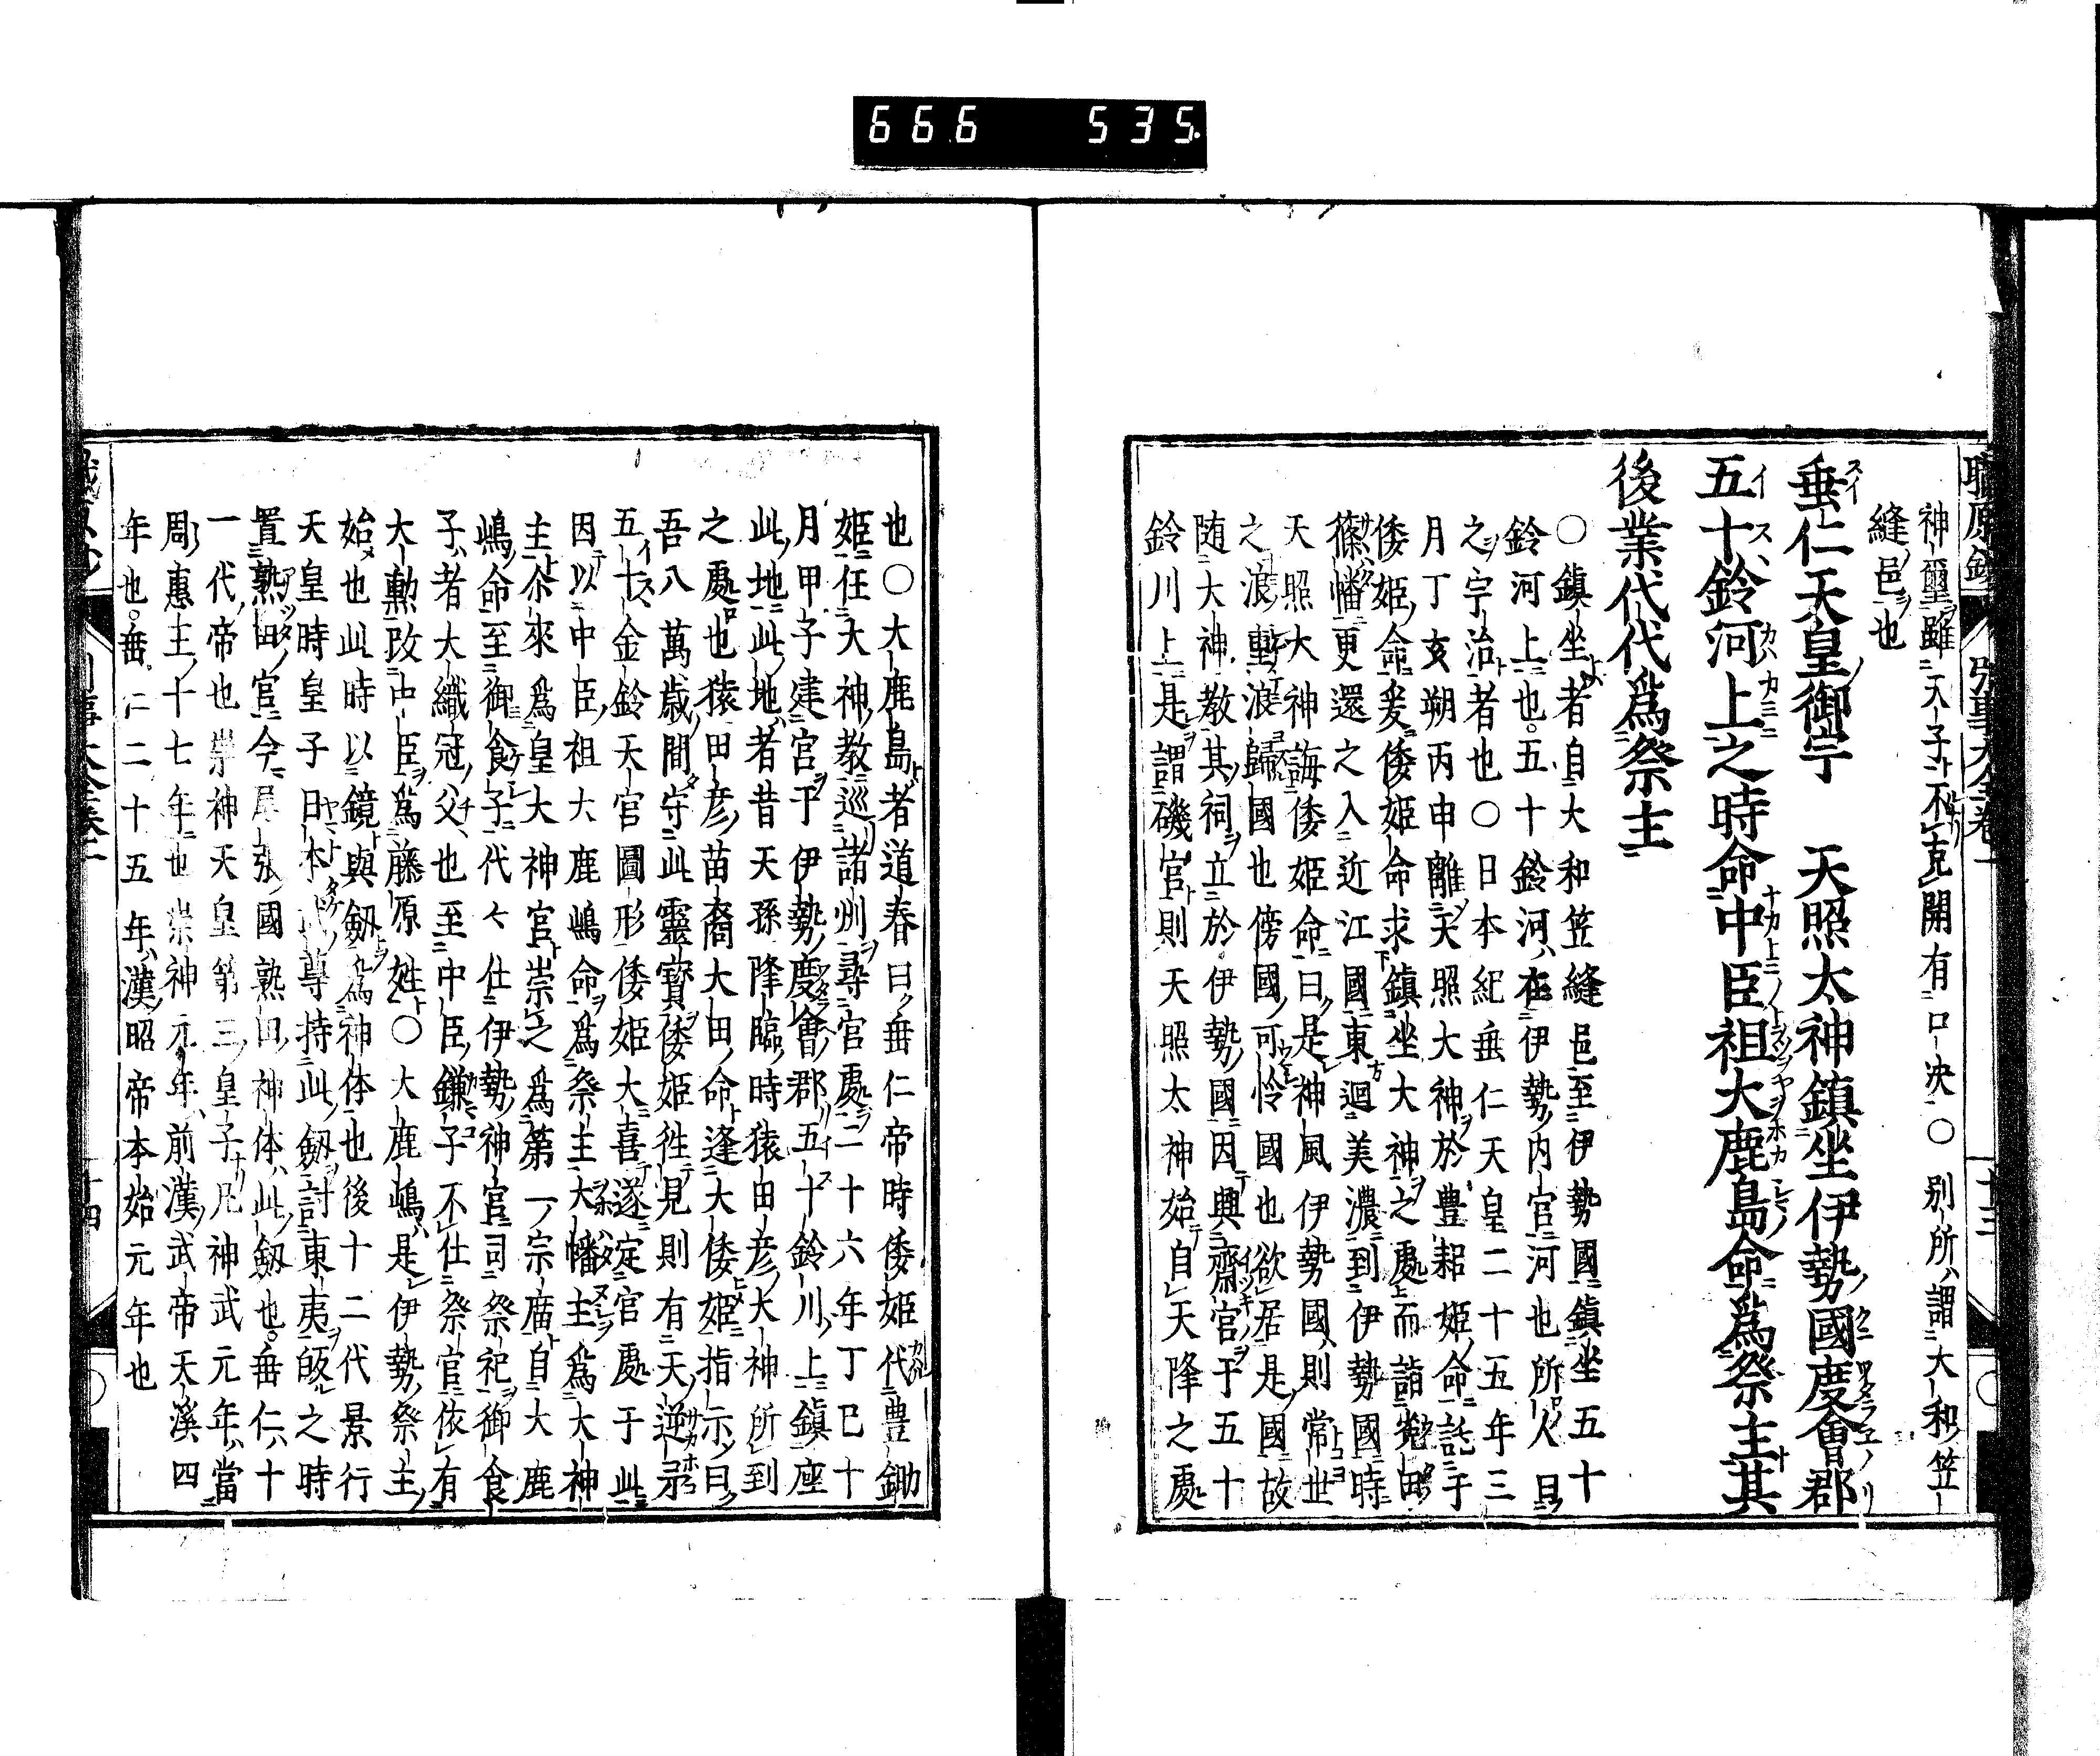 666 535.
神璽雖天子不克開有口决〇別所謂大和笠
縫邑也
垂仁天皇御宇 天照太神鎮坐伊勢國度會郡
五十鈴河上之時命中臣祖大鹿島命爲祭主其
後業代代爲祭主
〇鎮坐者自大和笠縫邑至伊勢國鎮坐五十
鈴河上也。五十鈴河在伊勢内宮河也所人曰
之宇治者也〇日本紀垂仁天皇二十五年三
月丁亥朔丙申離天照大神於豊耜姫命託于
倭姫命爰倭姫命求鎮坐大神之處而詣菟田
篠幡更還之入近江國東廻美濃到伊勢國時
天照大神誨倭姫命曰是神風伊勢國則常世
之浪重浪歸國也傍國可怜國也欲居是國故
随大神教其祠立於伊勢國因興齋宮于五十
鈴川上是謂磯宮則天照太神始自天降之處
也〇大鹿島者道春曰垂仁帝時倭姫代豊鋤
姫任大神教巡諸州尋宮處二十六年丁巳十
月甲子建宮于伊勢度會郡五十鈴川上鎮座
此地此地者昔天孫降臨時猿田彦大神所到
之處也猿田彦苗裔大田命逢大倭姫指示曰
吾八萬歳間守此靈寳倭姫徃見則有天逆矛
五十金鈴天宮圖形倭姫大喜遂定宮處于此
因以中臣祖大鹿嶋命爲祭主大幡主爲大神
主尒來爲皇大神宮崇之爲第一宗廟自大鹿
嶋命至御食子代々仕伊勢神宮司祭祀御食
子者大織冠父也至中臣鎌子不仕祭官依有
大勲改中臣爲藤原姓〇大鹿嶋是伊勢祭主
始也此時以鏡與劔爲神体也後十二代景行
天皇時皇子日本武尊持此劔討東夷皈之時
置熱田宮今尾張國熱田神体此劔也。垂仁十
一代帝也崇神天皇第三皇子凡神武元年當
周惠王十七年也崇神元年前漢武帝天漢四
年也。垂仁二十五年漢昭帝本始元年也